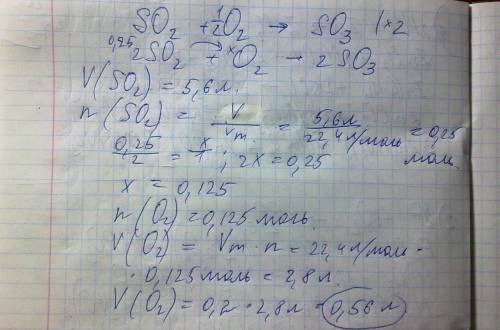 SO₂ + ½O₂ → SO₃ |×2
0,25 x
2SO₂ + O₂ → 2SO₃
V(SO₂) = 5,6 л.
n(SO₂) = V/Vm. = 5,6л/22,4 л/моль = 0,25 моль.
0,25/2 = x/1 ; 2x = 0,25
x = 0,125
n(O₂) = 0,125 моль.
V(O₂) = Vm · n = 22,4 л/моль ·
· 0,125 моль = 2,8 л.
V(O₂) = 0,2 · 2,8 л = 0,56 л